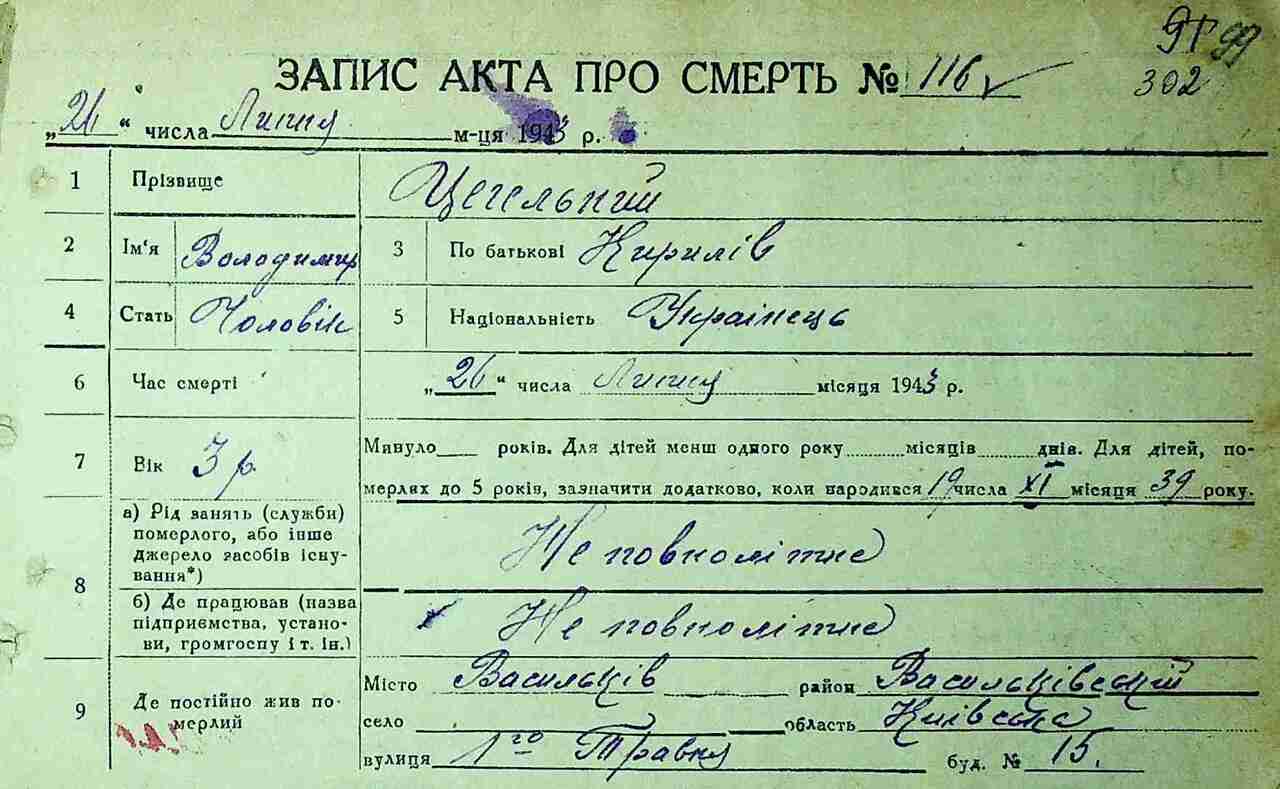 99
302
ЗАПИС АКТА ПРО СМЕРТЬ № 116
„26“ числа Липня м-ця 1943 р.
1 Прізвище Цегельний
2 Ім'я Володимир 3 По батькові Кирилів
4 Стать Чоловік 5 Національність Українець
6 Час смерті „26“ числа Липня місяця 1943 р.
7 Вік 3 р. Минуло____ років. Для дітей менш одного року.........місяців.........днів. Для дітей, по-
мерлих до 5 років, зазначити додатково, коли народився 19 числа XI місяця 39 року.
8 а) Рід занять (служби)
померлого, або інше
джерело засобів існу-
вання*) Не повнолітнє
б) Де працював (назва
підприємства, устано-
ви, громгоспу і т. ін.) Не повнолітнє
9 Де постійно жив по-
мерлий
Місто Васильків район Васильківський
село область Київська
вулиця 1го Травня буд. № 15.